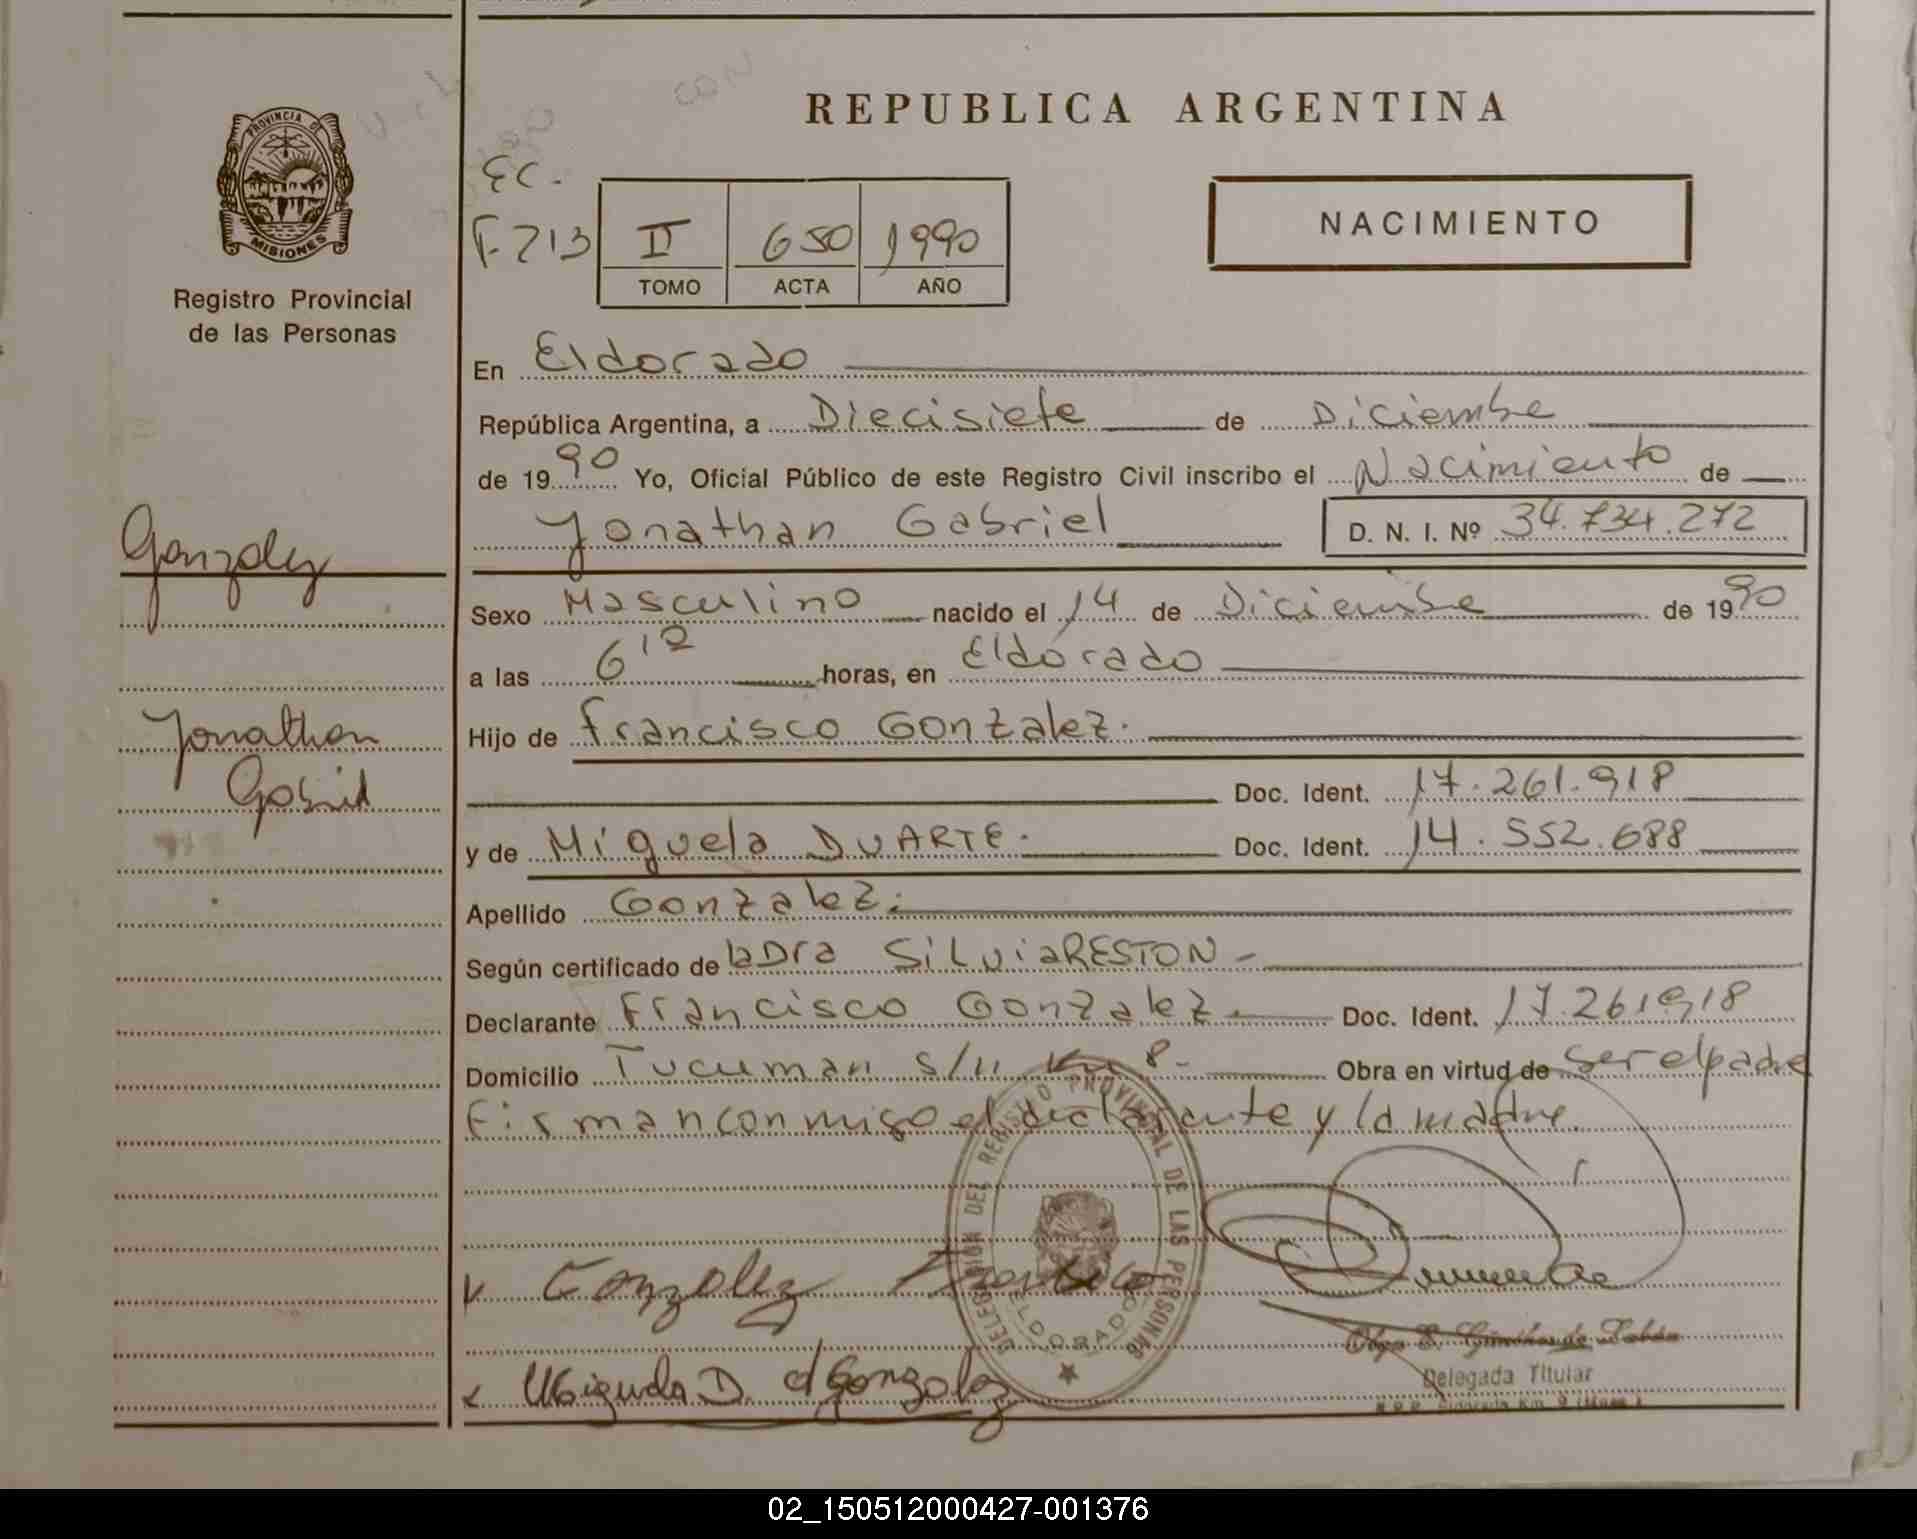 REPUBLICA ARGENTINA
PROVINCIA DE
MISIONES
Registro Provincial
de las Personas
CON
EC.
F. 213
II 650 1990
TOMO ACTA AÑO
NACIMIENTO
En Eldorado
República Argentina, a Diecisiete de Diciembre
de 1990 Yo, Oficial Público de este Registro Civil inscribo el Nacimiento de
Jonathan Gabriel D. N. I. Nº 34.734.272
Gonzalez
Sexo Masculino nacido el 14 de Diciembre de 1990
a las 6 12 horas, en Eldorado
Jonathan
Gabriel
Hijo de Francisco Gonzalez.
Doc. Ident. 17.261.918
y de Miguela DUARTE. Doc. Ident. 14.552.688
Apellido Gonzalez.
Según certificado de la Dra SiLviaRESTON-
Declarante Francisco Gonzalez. Doc. Ident. 17.261918
Domicilio Tucuman s/n Km 8- Obra en virtud de ser el padre
Firman conmigo el declarante y la madre.
DELEGACION DEL REGISTRO PROVINCIAL DE LAS PERSONAS
ELDORADO
Gonzalez Francisco
Miguela D. d Gonzalez
Delegada Titular
02_150512000427-001376